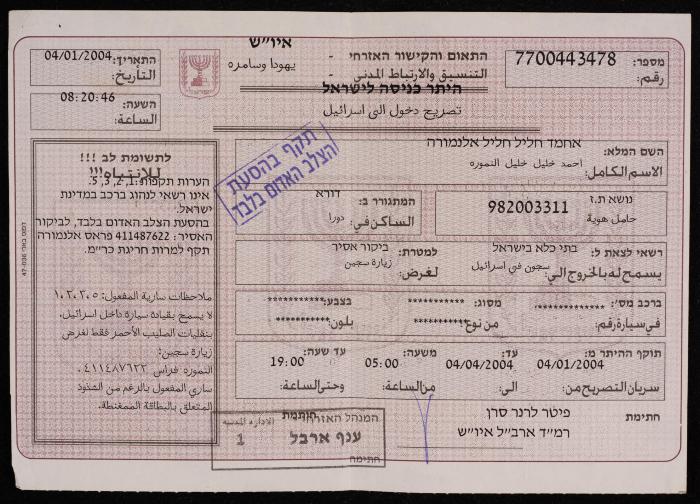 איו"ש
יהודה וסאמרה
מספר: 7700443478
رقم:
התאום והקישור האזרחי -
التنسيق والارتباط المدني -
התאריך: 04/01/2004
التاريخ:
היתר כניסה לישראל
تصريح دخول الى اسرائيل
השעה: 08:20:46
الساعة:
השם המלא: אחמד חליל חליל אלנמורה
الاسم الكامل: احمد خليل خليل النموره
תקף בהסעת
הצלב האדום בלבד
נושא ת.ז 982003311
حامل هوية
המתגורר ב: דורא
الساكن في: دورا
רשאי לצאת ל: בתי כלא בישראל
يسمح له بالخروج الى: سجون في اسرائيل
למטרת: ביקור אסיר
لغرض: زيارة سجين
ברכב מס': **************
في سيارة رقم:
מסוג: ***********
من نوع: ***********
בצבע: ***********
بلون: ***********
תוקף ההיתר מ: 04/01/2004
سريان التصريح من:
עד: 04/04/2004
الى:
משעה: 05:00
من الساعة:
עד שעה: 19:00
وحتى الساعة:
לתשומת לב !!!
للانتباه!!!
הערות תקפות: 1, 2, 3, 5.
אינו רשאי לנהוג ברכב במדינת
ישראל.
בהסעת הצלב האדום בלבד, לביקור
האסיר: 411487622 פראס אלנמורה
תקף למרות חריגת כרי"מ.
ملاحظات سارية المفعول: ١،٢،٣،٥
لا يسمح بقيادة سيارة داخل اسرائيل.
بنقليات الصليب الأحمر فقط لغرض
زيارة سجين:
النموره فراس ٤١١٤٨٧٦٢٢.
ساري المفعول بالرغم من الشذوذ
المتعلق بالبطاقة الممغنطة.
חתימת
חתימה
פיטר לרנר סרן
רמ"ד ארב"ל איו"ש
המנהל האזרחי
الادارة المدنية
ענף ארבל
1
חתימה